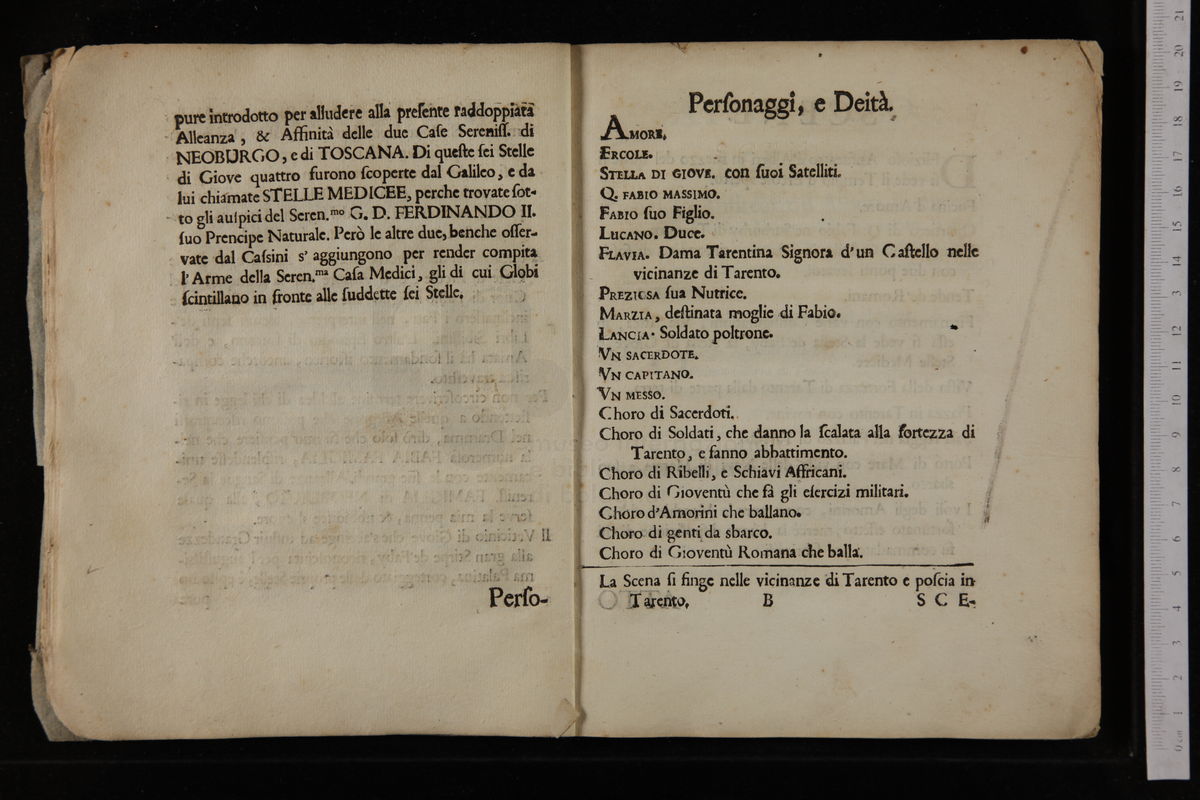 pure introdotto per alludere alla preſente raddoppiata
Alleanza, & Affinità delle due Caſe Sereniſſ. di
NEOBURGO, e di TOSCANA. Di queſte ſei Stelle
di Giove quattro furono ſcoperte dal Galileo, e da
lui chiamate STELLE MEDICEE, perche trovate ſot-
to gli auſpici del Seren.mo G. D. FERDINANDO II.
ſuo Prencipe Naturale. Però le altre due, benche oſſer-
vate dal Caſsini s' aggiungono per render compita
l'Arme della Seren.ma Caſa Medici, gli di cui Globi
ſcintillano in fronte alle ſuddette ſei Stelle.
Perſo-
Perſonaggi, e Deità.
AMORE.
ERCOLE.
STELLA DI GIOVE. con ſuoi Satelliti.
Q. FABIO MASSIMO.
FABIO ſuo Figlio.
LUCANO. Duce.
FLAVIA. Dama Tarentina Signora d'un Caſtello nelle
vicinanze di Tarento.
PREZIOSA ſua Nutrice.
MARZIA, deſtinata moglie di Fabio.
LANCIA. Soldato poltrone.
VN SACERDOTE.
VN CAPITANO.
VN MESSO.
Choro di Sacerdoti.
Choro di Soldati, che danno la ſcalata alla fortezza di
Tarento, e fanno abbattimento.
Choro di Ribelli, e Schiavi Affricani.
Choro di Gioventù che fà gli eſercizi militari.
Choro d'Amorini che ballano.
Choro di genti da sbarco.
Choro di Gioventù Romana che balla.
La Scena ſi finge nelle vicinanze di Tarento e poſcia in
Tarento. B S C E-